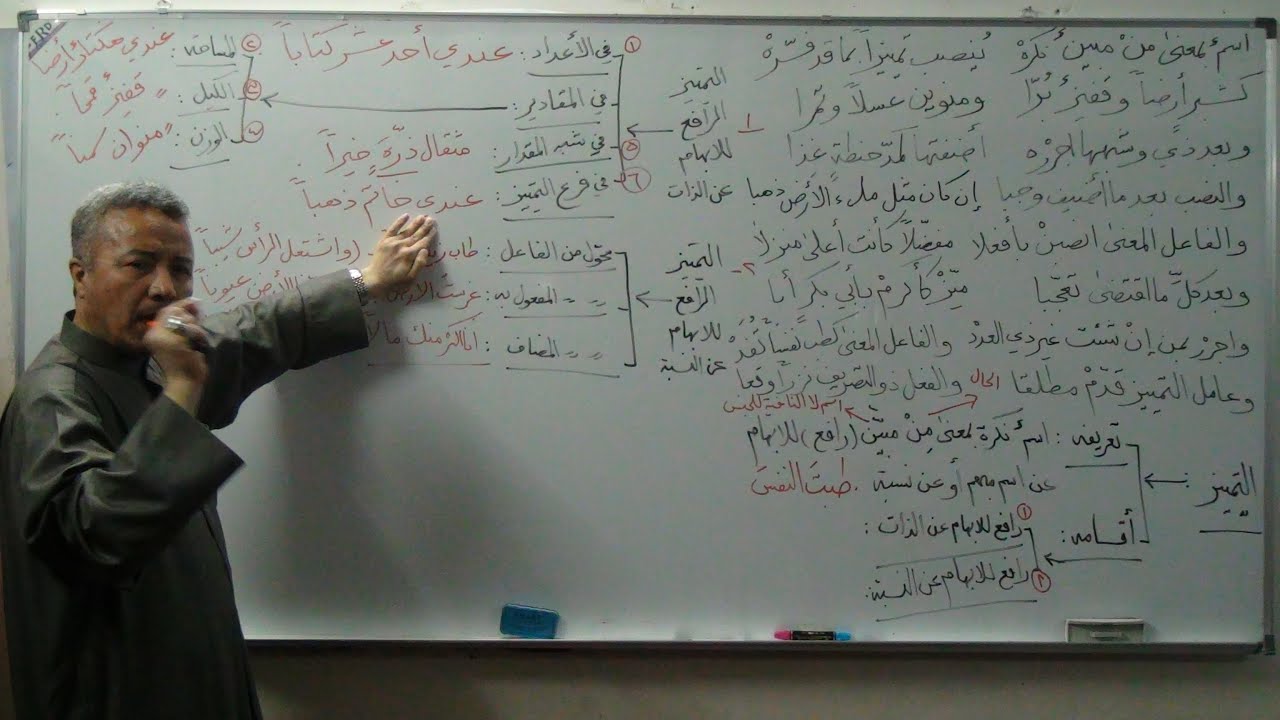 اسمٌ بمعنى مِنْ مبين نكرهْ يُنصب تميزاً بما قد فسّرهْ
كشبر أرضاً وقفيز بُرّا ومنوين عسلاً وتمرا
وبعد ذي وشبهها اجررْه أضفتها كمدّ حنطة غذا
والنصب بعد ما أضيف وجبا إن كان مثل ملء الأرض ذهبا
والفاعل المعنى انصبنْ بأفعلا مفضّلاً كأنت أعلى منزلا
وبعد كلّ ما اقتضى تعجّبا ميّزْ كأكرمْ بأبي بكرٍ أبا
واجرر بمن إنْ شئت غير ذي العدد والفاعل المعنى كطب نفساً تُفَدْ
وعامل التمييز قدّمْ مطلقا والفعل ذو التصريف نزراً
الحال
اسم لا النافية للجنس
التميز :
تعريفه : اسمٌ نكرة بمعنى مِنْ مبيّن (رافع) للابهام
عن اسم مبهم أو عن نسبة . طبتَ النفسَ
أقسامه :
١ رافع للابهام عن الذات :
٢ رافع للابهام عن النسبة :
١- التميز
الرافع
للابهام
عن الذات
١ في الأعداد : عندي أحد عشر كتاباً
في المقادير :
المساحة : عندي هكتار أرضاً
الكيل : " قفيز قمحاً
الوزن : " منوان سمناً
٥ في شبه المقدار : مثقال ذرّةٍ خيراً .
٦ في فرع التمييز : عندي خاتم ذهباً
٢- التميز
الرافع
للابهام
عن النسبة
محوّل من الفاعل : طاب (واشتعل الرأس شيباً
" " المفعول به : غرست الأرض الأرض عيوناً
" " المضاف : انا اكثر منك مالاً